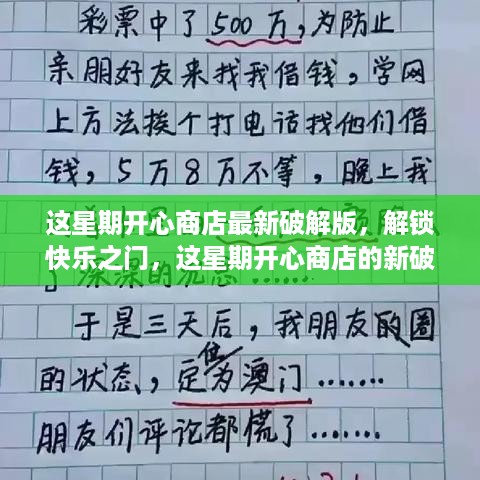 彩票中了500万,为防止
亲朋好友来找我借钱,学网
上方法挨个打电话找他们借
钱,5万8万不等,晚上我
这星期开心商店最新破解版，解锁
快乐之门，这星期开心商店的新破
于是三天后,我朋友的圈
的状态,定位为澳门.......
朋友们评论都慌了.......